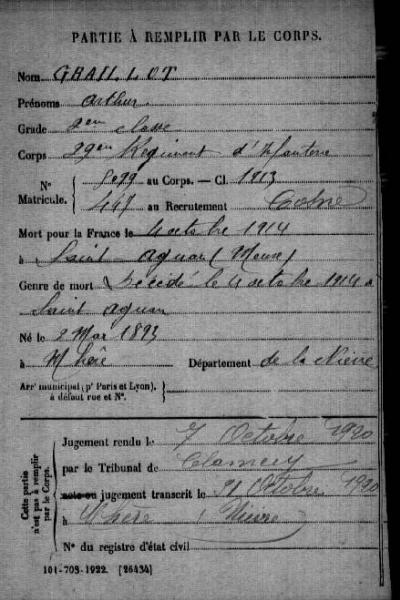 PARTIE À REMPLIR PAR LE CORPS.
Nom GRAILLOT
Prénoms Arthur
Grade 2em classe
Corps 29em Régiment d'Infanterie
N° Matricule. 5099 au Corps. — Cl. 1913
447 au Recrutement Cosne
Mort pour la France le 4 octobre 1914
à Saint Agnan (Meuse)
Genre de mort Décédé le 4 octobre 1914 à
Saint Agnan
Né le 2 Mai 1893
à Département de la Nièvre
Arrt municipal (pr Paris et Lyon), à défaut rue et N°.
Cette partie n'est pas à remplir par le Corps.
Jugement rendu le 7 Octobre 1920
par le Tribunal de Clamecy
acte ou jugement transcrit le 31 Octobre 1920
à Nièvre
N° du registre d'état civil
101-708-1922. [26434]